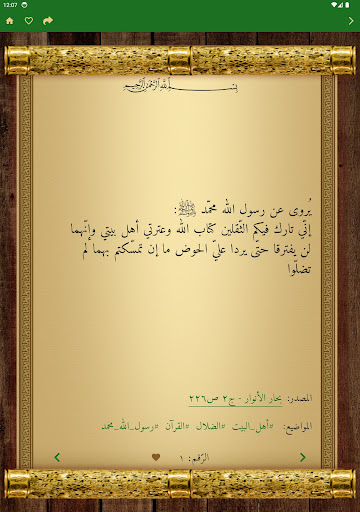 12:07
بِسْمِ اللَّهِ الرَّحْمَنِ الرَّحِيمِ
يُروى عن رسول الله محمّد ﷺ:
إنّي تارك فيكم الثّقلين كتاب الله وعترتي أهل بيتي وإنّهما
لن يفترقا حتّى يردا عليّ الحوض ما إن تمسّكتم بهما لم
تضلّوا
المصدر: بحار الأنوار - ج٢ ص٢٢٦
المواضيع: #أهل_البيت #الضلال #القرآن #رسول_الله_محمد
الرّقم: ١